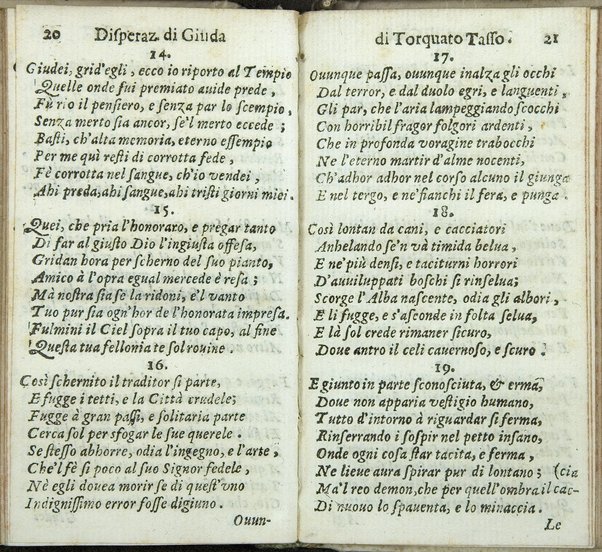 20 Disperaz. di Giuda
14.
Giudei, grid'egli, ecco io riporto al Tempio
Quelle onde fui premiato auide prede,
Fù rio il pensiero, e senza par lo scempio,
Senza merto sia ancor, se'l merto eccede;
Basti, ch'alta memoria, eterno essempio
Per me quì resti di corrotta fede,
Fè corrotta nel sangue, ch'io vendei,
Ahi preda, ahi sangue, ahi tristi giorni miei.
15.
Quei, che pria l'honoraro, e pregar tanto
Di far al giusto Dio l'ingiusta offesa,
Gridan hora per scherno del suo pianto,
Amico à l'opra egual mercede è resa;
Mà nostra sia se la ridoni, e'l vanto
Tuo pur sia ogn'hor de l'honorata impresa.
Fulmini il Ciel sopra il tuo capo, al fine
Questa tua fellonia te sol rouine.
16.
Così schernito il traditor si parte,
E fugge i tetti, e la Città crudele;
Fugge à gran passi, e solitaria parte
Cerca sol per sfogar le sue querele.
Se stesso abhorre, odia l'ingegno, e l'arte,
Che'l fè sì poco al suo Signor fedele,
Nè egli douea morir se di quest'vno
Indignissimo error fosse digiuno.
Ouun-
di Torquato Tasso. 21
17.
Ouunque passa, ouunque inalza gli occhi
Dal terror, e dal duolo egri, e languenti,
Gli par, che l'aria lampeggiando scocchi
Con horribil fragor folgori ardenti,
Che in profonda voragine trabocchi
Ne l'eterno martir d'alme nocenti,
Ch'adhor adhor nel corso alcuno il giunga
E nel tergo, e ne'fianchi il fera, e punga.
18.
Così lontan da cani, e cacciatori
Anhelando se'n và timida belua,
E ne'più densi, e taciturni horrori
D'auuiluppati boschi si rinselua;
Scorge l'Alba nascente, odia gli albori,
E li fugge, e s'asconde in folta selua,
E là sol crede rimaner sicuro,
Doue antro il celi cauernoso, e scuro.
19.
E giunto in parte sconosciuta, & erma,
Doue non apparia vestigio humano,
Tutto d'intorno à riguardar si ferma,
Rinserrando i sospir nel petto insano,
Onde ogni cosa star tacita, e ferma,
Ne lieue aura spirar pur di lontano; (cia
Ma'l reo demon, che per quell'ombra il cac-
Di nuouo lo spauenta, e lo minaccia.
Le